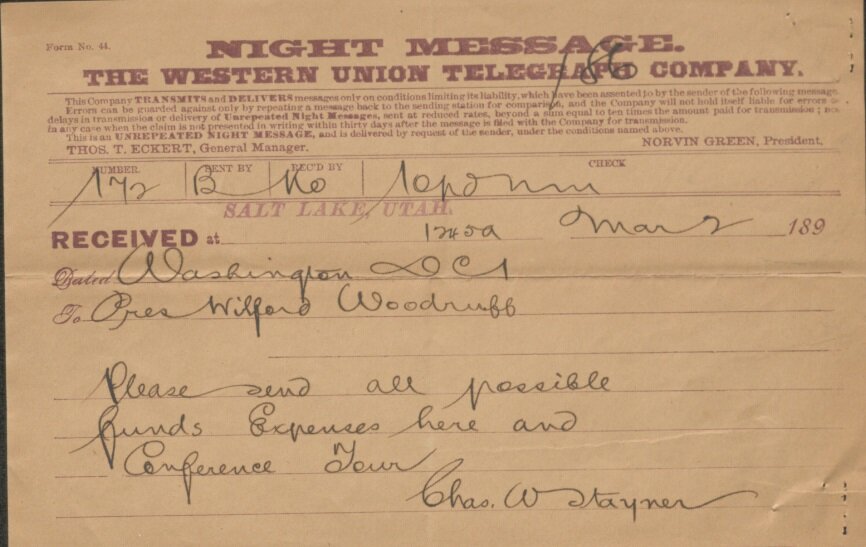 Form No. 44.
NIGHT MESSAGE.
186
THE WESTERN UNION TELEGRAPH COMPANY.
This Company TRANSMITS and DELIVERS messages only on conditions limiting its liability, which have been assented to by the sender of the following message.
Errors can be guarded against only by repeating a message back to the sending station for comparison, and the Company will not hold itself liable for errors or
delays in transmission or delivery of Unrepeated Night Messages, sent at reduced rates, beyond a sum equal to ten times the amount paid for transmission; nor
in any case when the claim is not presented in writing within thirty days after the message is filed with the Company for transmission.
This is an UNREPEATED NIGHT MESSAGE, and is delivered by request of the sender, under the conditions named above.
THOS. T. ECKERT, General Manager. NORVIN GREEN, President.
NUMBER SENT BY REC'D BY CHECK
172 B No
SALT LAKE, UTAH.
RECEIVED at 1245a Mar 2 189
Dated Washington DC 1
To Pres Wilford Woodruff
Please send all possible
funds Expenses here and
Conference Tour
Chas. W Stayner